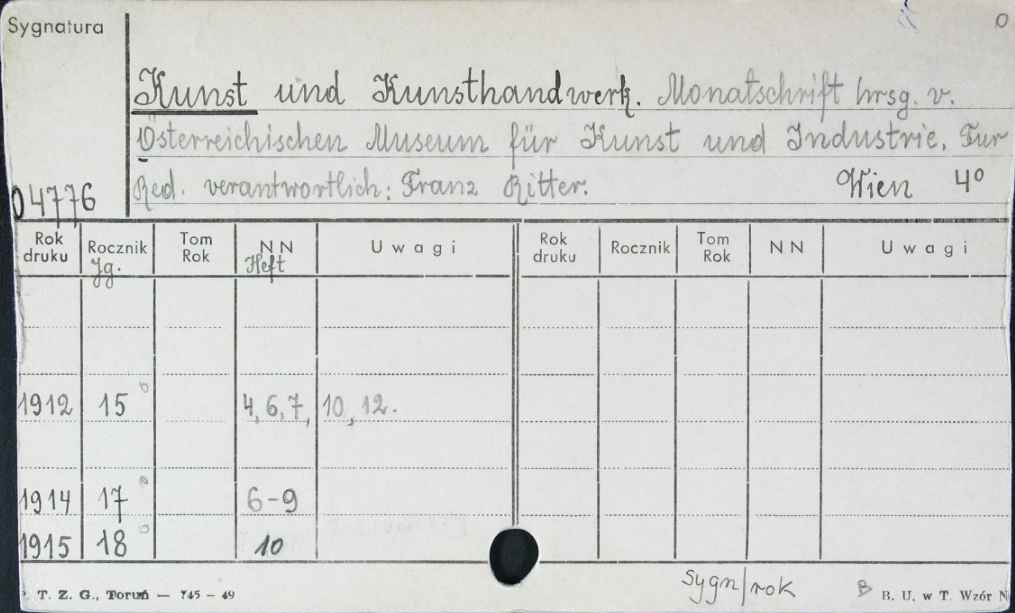 Sygnatura
0
Kunst und Kunsthandwerk. Monatschrift hrsg. v.
Österreichischen Museum für Kunst und Industrie. Fur
04776 Red. verantwortlich: Franz Ritter. Wien 4°
Rok druku Rocznik Jg. Tom Rok NN Heft Uwagi Rok druku Rocznik Tom Rok NN Uwagi
1912 15 4, 6, 7, 10, 12.
1914 17 6-9
1915 18 10
Sygn/rok
T. Z. G., Toruń — 745 - 49
B
B. U. w T. Wzór N